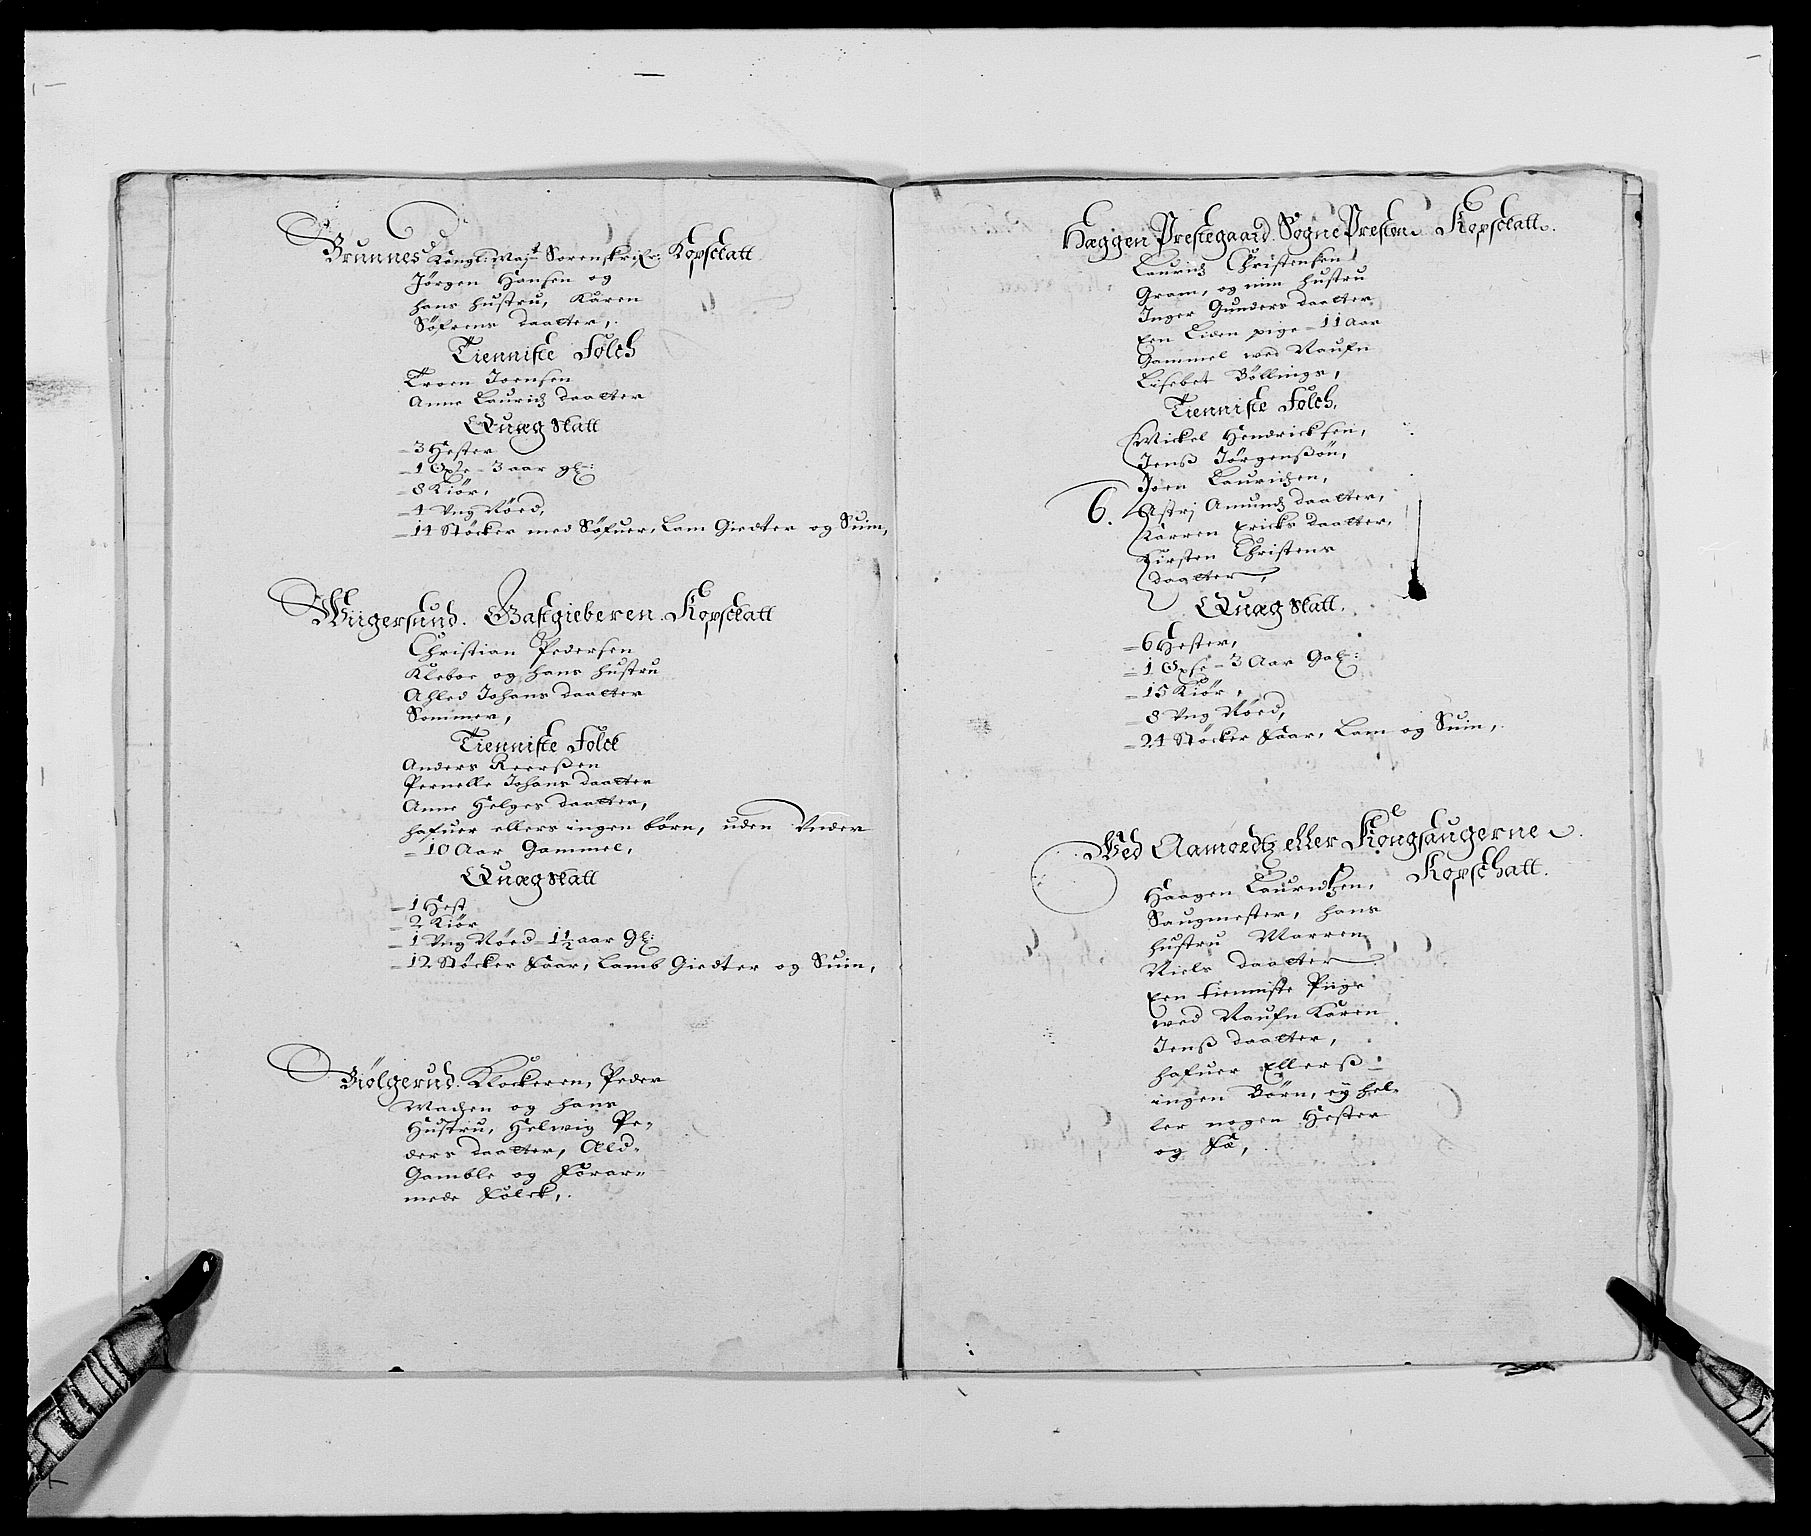 Brunnes Kongl: Maj:t Sorenskrifr: Kopschatt
Jørgen Hansen og
hans hustru, Karen
Søfrens daatter,
Tienniste Folch
Troen Joensen
Anne Lauridz daatter
Quæg Skatt
3 Hester
1 Oxse 3 aar gl:
8 Kiør,
4 Vng Nøed,
14 Støcker med Søfuer, Lam Giedter og Suin,
Wiigersund. Gastgieberen. Kopschatt
Christian Pedersen
Kleboe og hans hustru
Ahled Johans daatter
Sommer,
Tienniste Folck
Anders Reerßen
Pernelle Johans daatter
Anne Helges daatter,
hafuer ellers ingen børn, uden Vnder
10 Aar Gammel,
Quæg Skatt
1 Hest
2 Kiør
1 Vng Nøed 1½ aar Gl:
12 Støcker Faar, Lamb Giedter og Suin,
Bølgerud. Klockeren, Peder
Madzen og hans
Hustru, Helwig Pe-
ders daatter, Ald-
Gamble og Forar-
mede Folck,
Hæggen Prestegaard. Sogne Presten Kopschatt.
Lauridz Christensen
Gram, og min hustru
Inger Gunders daatter
Een Liden pige 11 Aar
Gammel wed Naufn
Lisebet Bøllings,
Tienniste Folch,
Mickel Hendricksen,
Jenß Jørgenßøn,
Joen Lauridzen,
6. Astrj Amundz daatter,
Karren Ericks daatter,
Kirsten Christens
daatter,
Quæg Skatt.
6 Hester,
1 Oxse 3 Aar Gal:
15 Kiør,
8 Vng Nøed,
24 Støcker Faar, Lam og Suin,
Wed Aamoedtz eller Kongsaugerne
Kopschatt.
Haagen Lauridtzen,
Saugmester, hans
hustru Marren
Niels daatter
Een tienniste Piige
wed Naufn Karen
Jenß daatter,
hafuer Ellerß
ingen Børn, ey hel-
ler nogen Hester
og Fæ,